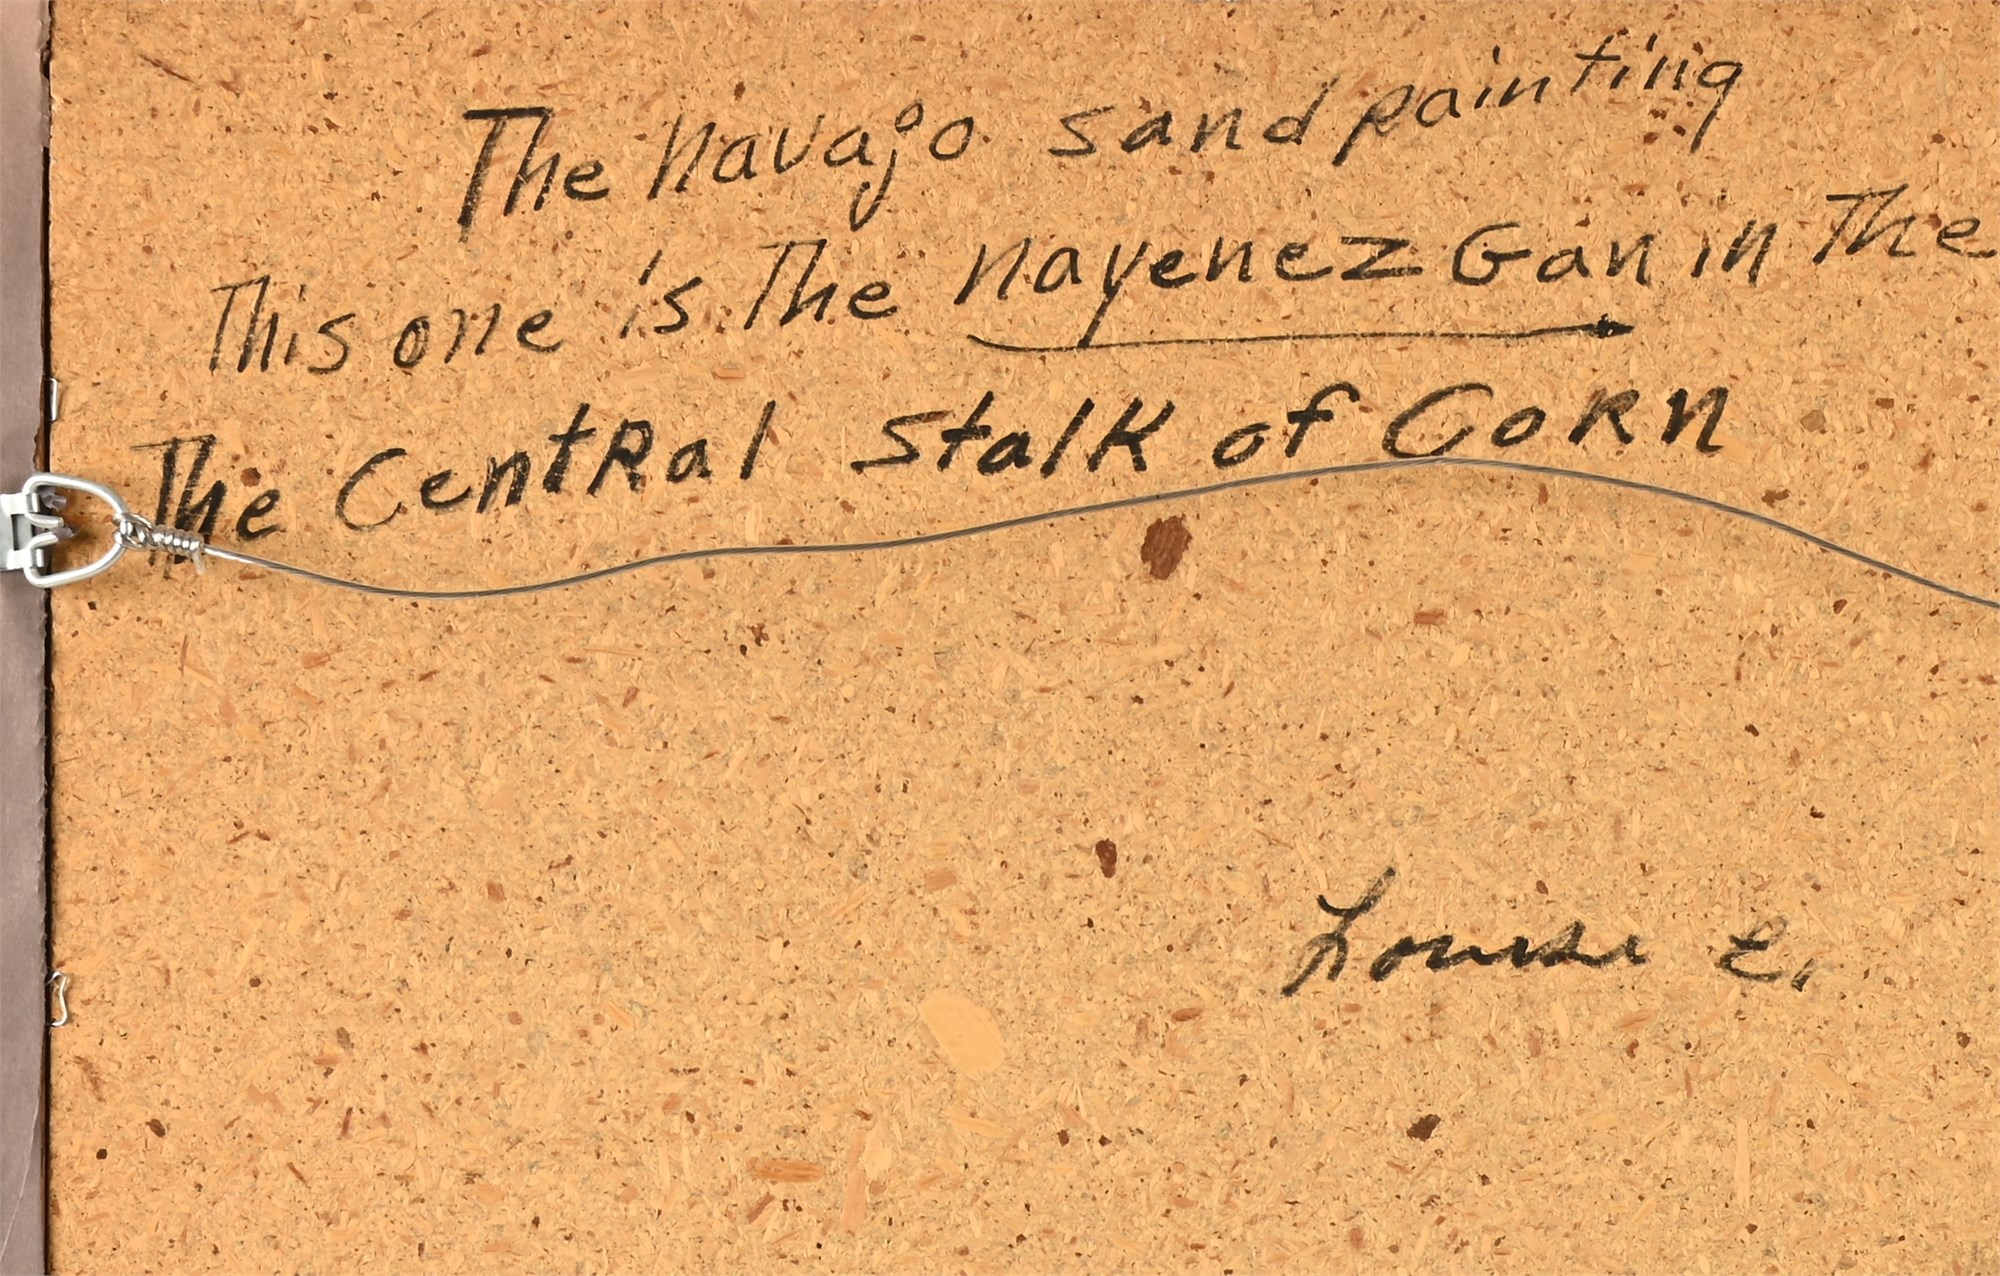 The Navajo sand painting
This one is The Nayenez Gan in The
The CentRal Stalk of CoRn
Louise E.